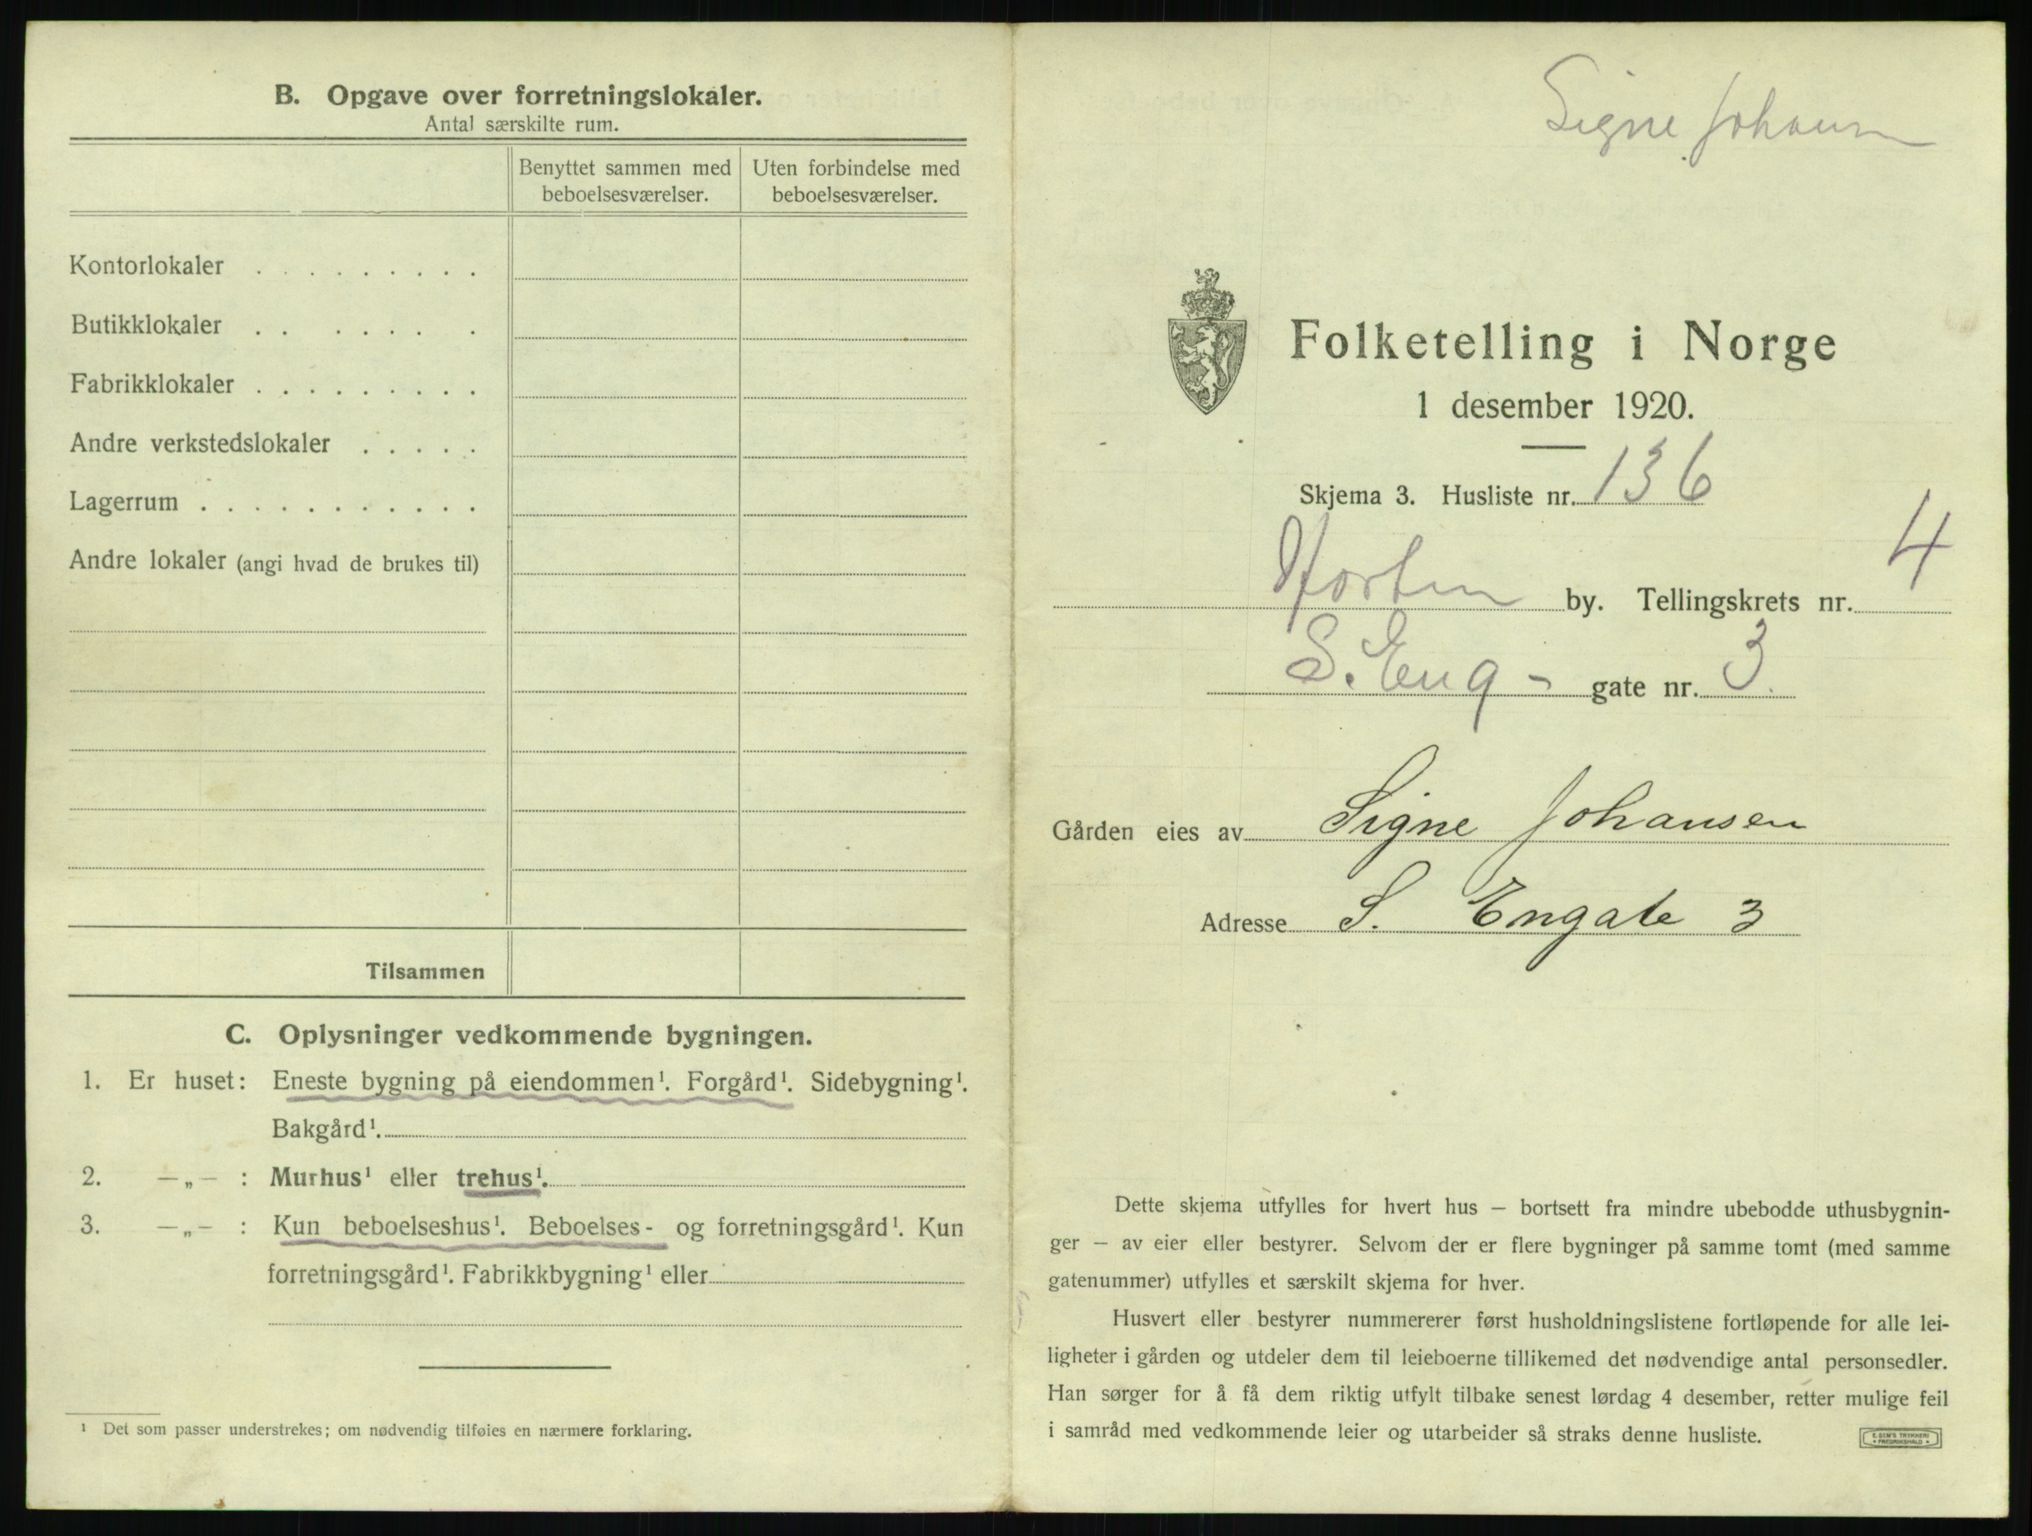 B. Opgave over forretningslokaler.
Antal særskilte rum.
Benyttet sammen med beboelsesværelser.
Uten forbindelse med beboelsesværelser.
Kontorlokaler . . . . . . . . .
Butikklokaler . . . . . . .
Fabrikklokaler . . . . . . . . .
Andre verkstedslokaler . . . . .
Lagerrum . . . . . . . . . . .
Andre lokaler (angi hvad de brukes til)
Tilsammen
C. Oplysninger vedkommende bygningen.
1. Er huset: Eneste bygning på eiendommen¹. Forgård¹. Sidebygning¹.
Bakgård¹.
2. —„— : Murhus¹ eller trehus¹.
3. —„— : Kun beboelseshus¹. Beboelses- og forretningsgård¹. Kun
forretningsgård¹. Fabrikkbygning¹ eller
¹ Det som passer understrekes; om nødvendig tilføies en nærmere forklaring.
Signe Johansen
Folketelling i Norge
1 desember 1920.
Skjema 3. Husliste nr. 136
Horten by. Tellingskrets nr. 4
S. Eng - gate nr. 3
Gården eies av Signe Johansen
Adresse S. Engate 3
Dette skjema utfylles for hvert hus — bortsett fra mindre ubebodde uthusbygnin-
ger — av eier eller bestyrer. Selvom der er flere bygninger på samme tomt (med samme
gatenummer) utfylles et særskilt skjema for hver.
Husvert eller bestyrer nummererer først husholdningslistene fortløpende for alle lei-
ligheter i gården og utdeler dem til leieboerne tillikemed det nødvendige antal personsedler.
Han sørger for å få dem riktig utfylt tilbake senest lørdag 4 desember, retter mulige feil
i samråd med vedkommende leier og utarbeider så straks denne husliste.
E. SEM'S TRYKKERI
FREDRIKSHALD